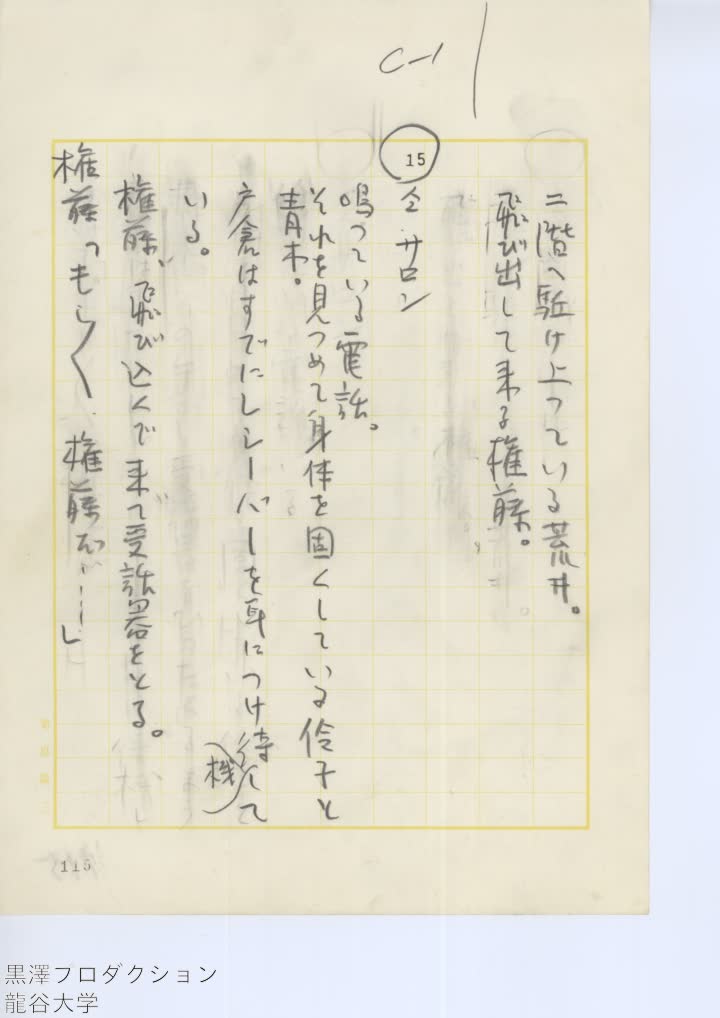 C-1
二階へ駈け上っている荒井。
飛び出して来る権藤。
15
仝 サロン
鳴っている電話。
それを見つめて身体を固くしている伶子と
青木。
戸倉はすでにレシーバーを耳につけ待して
(機)
いる。
権藤、飛び込んで来て受話器をとる。
権藤「もし〱、権藤だが……」
115
黒澤プロダクション
龍谷大学